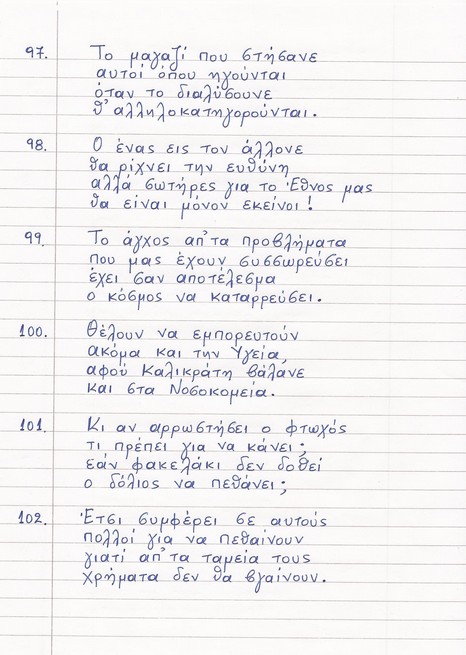 97. Το μαγαζί που στήσανε
αυτοί όπου ηγούνται
όταν το διαλύσουνε
θ' αλληλοκατηγορούνται.
98. Ο ένας εις τον άλλονε
θα ρίχνει την ευθύνη
αλλά σωτήρες για το Έθνος μας
θα είναι μόνον εκείνοι!
99. Το άγχος απ' τα προβλήματα
που μας έχουν συσσωρεύσει
έχει σαν αποτέλεσμα
ο κόσμος να καταρρεύσει.
100. Θέλουν να εμπορευτούν
ακόμα και την Υγεία,
αφού Καλικράτη βάλανε
και στα Νοσοκομεία.
101. Κι αν αρρωστήσει ο φτωχός
τι πρέπει για να κάνει;
εάν φακελάκι δεν δοθεί
ο δόλιος να πεθάνει;
102. Έτσι συμφέρει σε αυτούς
πολλοί για να πεθαίνουν
γιατί απ' τα ταμεία τους
χρήματα δεν θα βγαίνουν.